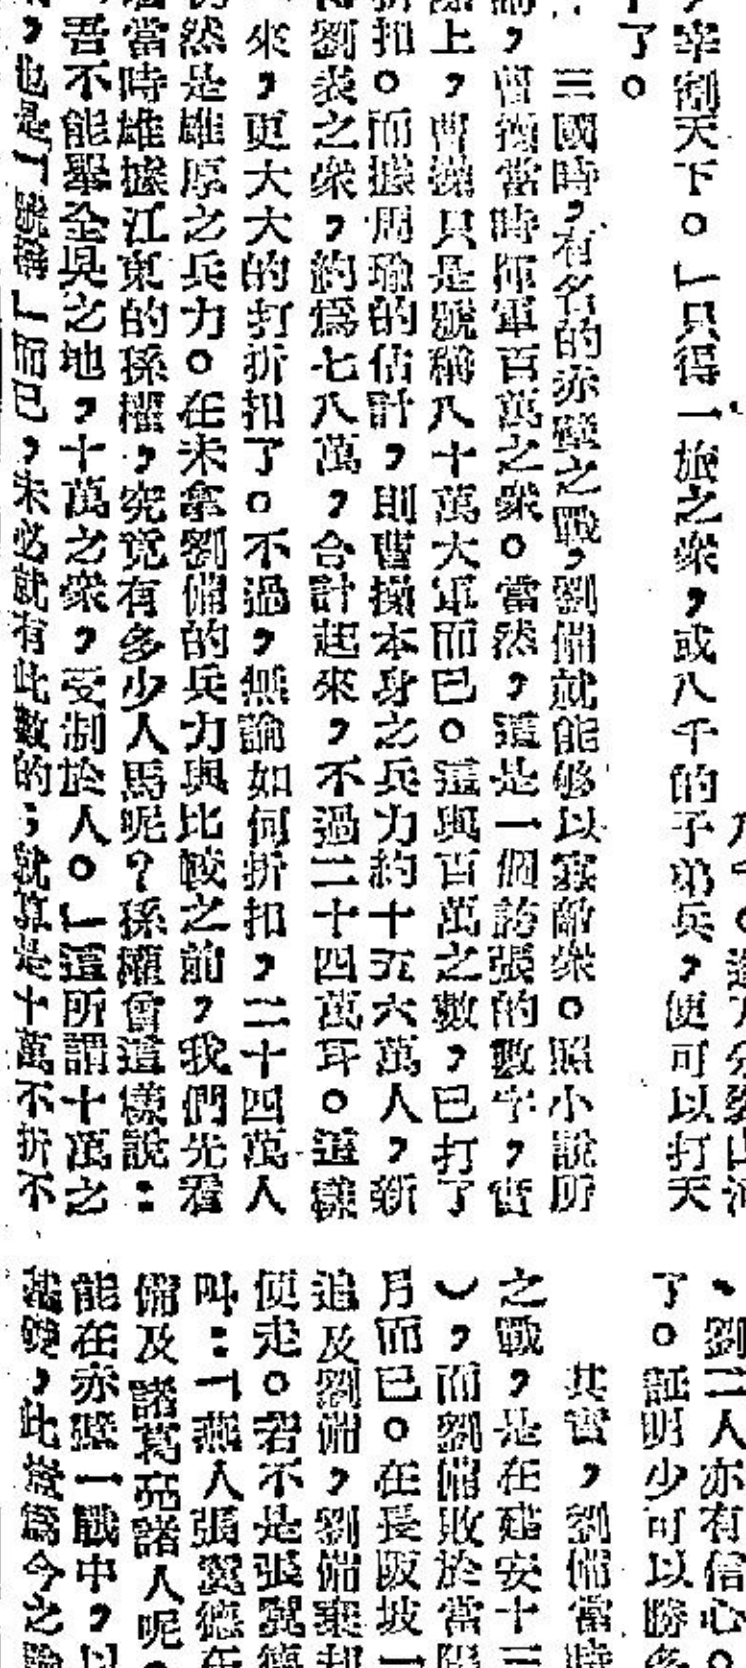 宰割天下。」只得一旅之衆，或八千的子弟兵，便可以打天
了。
三國時，有名的赤壁之戰，劉備就能够以寡敵衆。照小說所
，曹操當時揮軍百萬之衆。當然，這是一個誇張的數字，實
上，曹操只是號稱八十萬大軍而已。這與百萬之數，已打了
折扣。而據周瑜的估計，則曹操本身之兵力約十五六萬人，新
劉表之衆，約爲七八萬，合計起來，不過二十四萬耳。這樣
來，更大大的打折扣了。不過，無論如何折扣，二十四萬人
然是雄厚之兵力。在未拿劉備的兵力與比較之前，我們先看
當時雄據江東的孫權，究竟有多少人馬呢？孫權曾這樣說：
吾不能舉全吳之地，十萬之衆，受制於人。」這所謂十萬之
，也是「號稱」而已，未必就有此數的；就算是十萬不折不
，劉二人亦有信心。
了。証明少可以勝多
其實，劉備當時
之戰，是在建安十三
），而劉備敗於當陽
月而已。在長阪坡一
追及劉備，劉備棄却
便走。若不是張翼德
叫：「燕人張翼德在
備及諸葛亮諸人呢
能在赤壁一戰中，以
基礎，此豈爲今之論